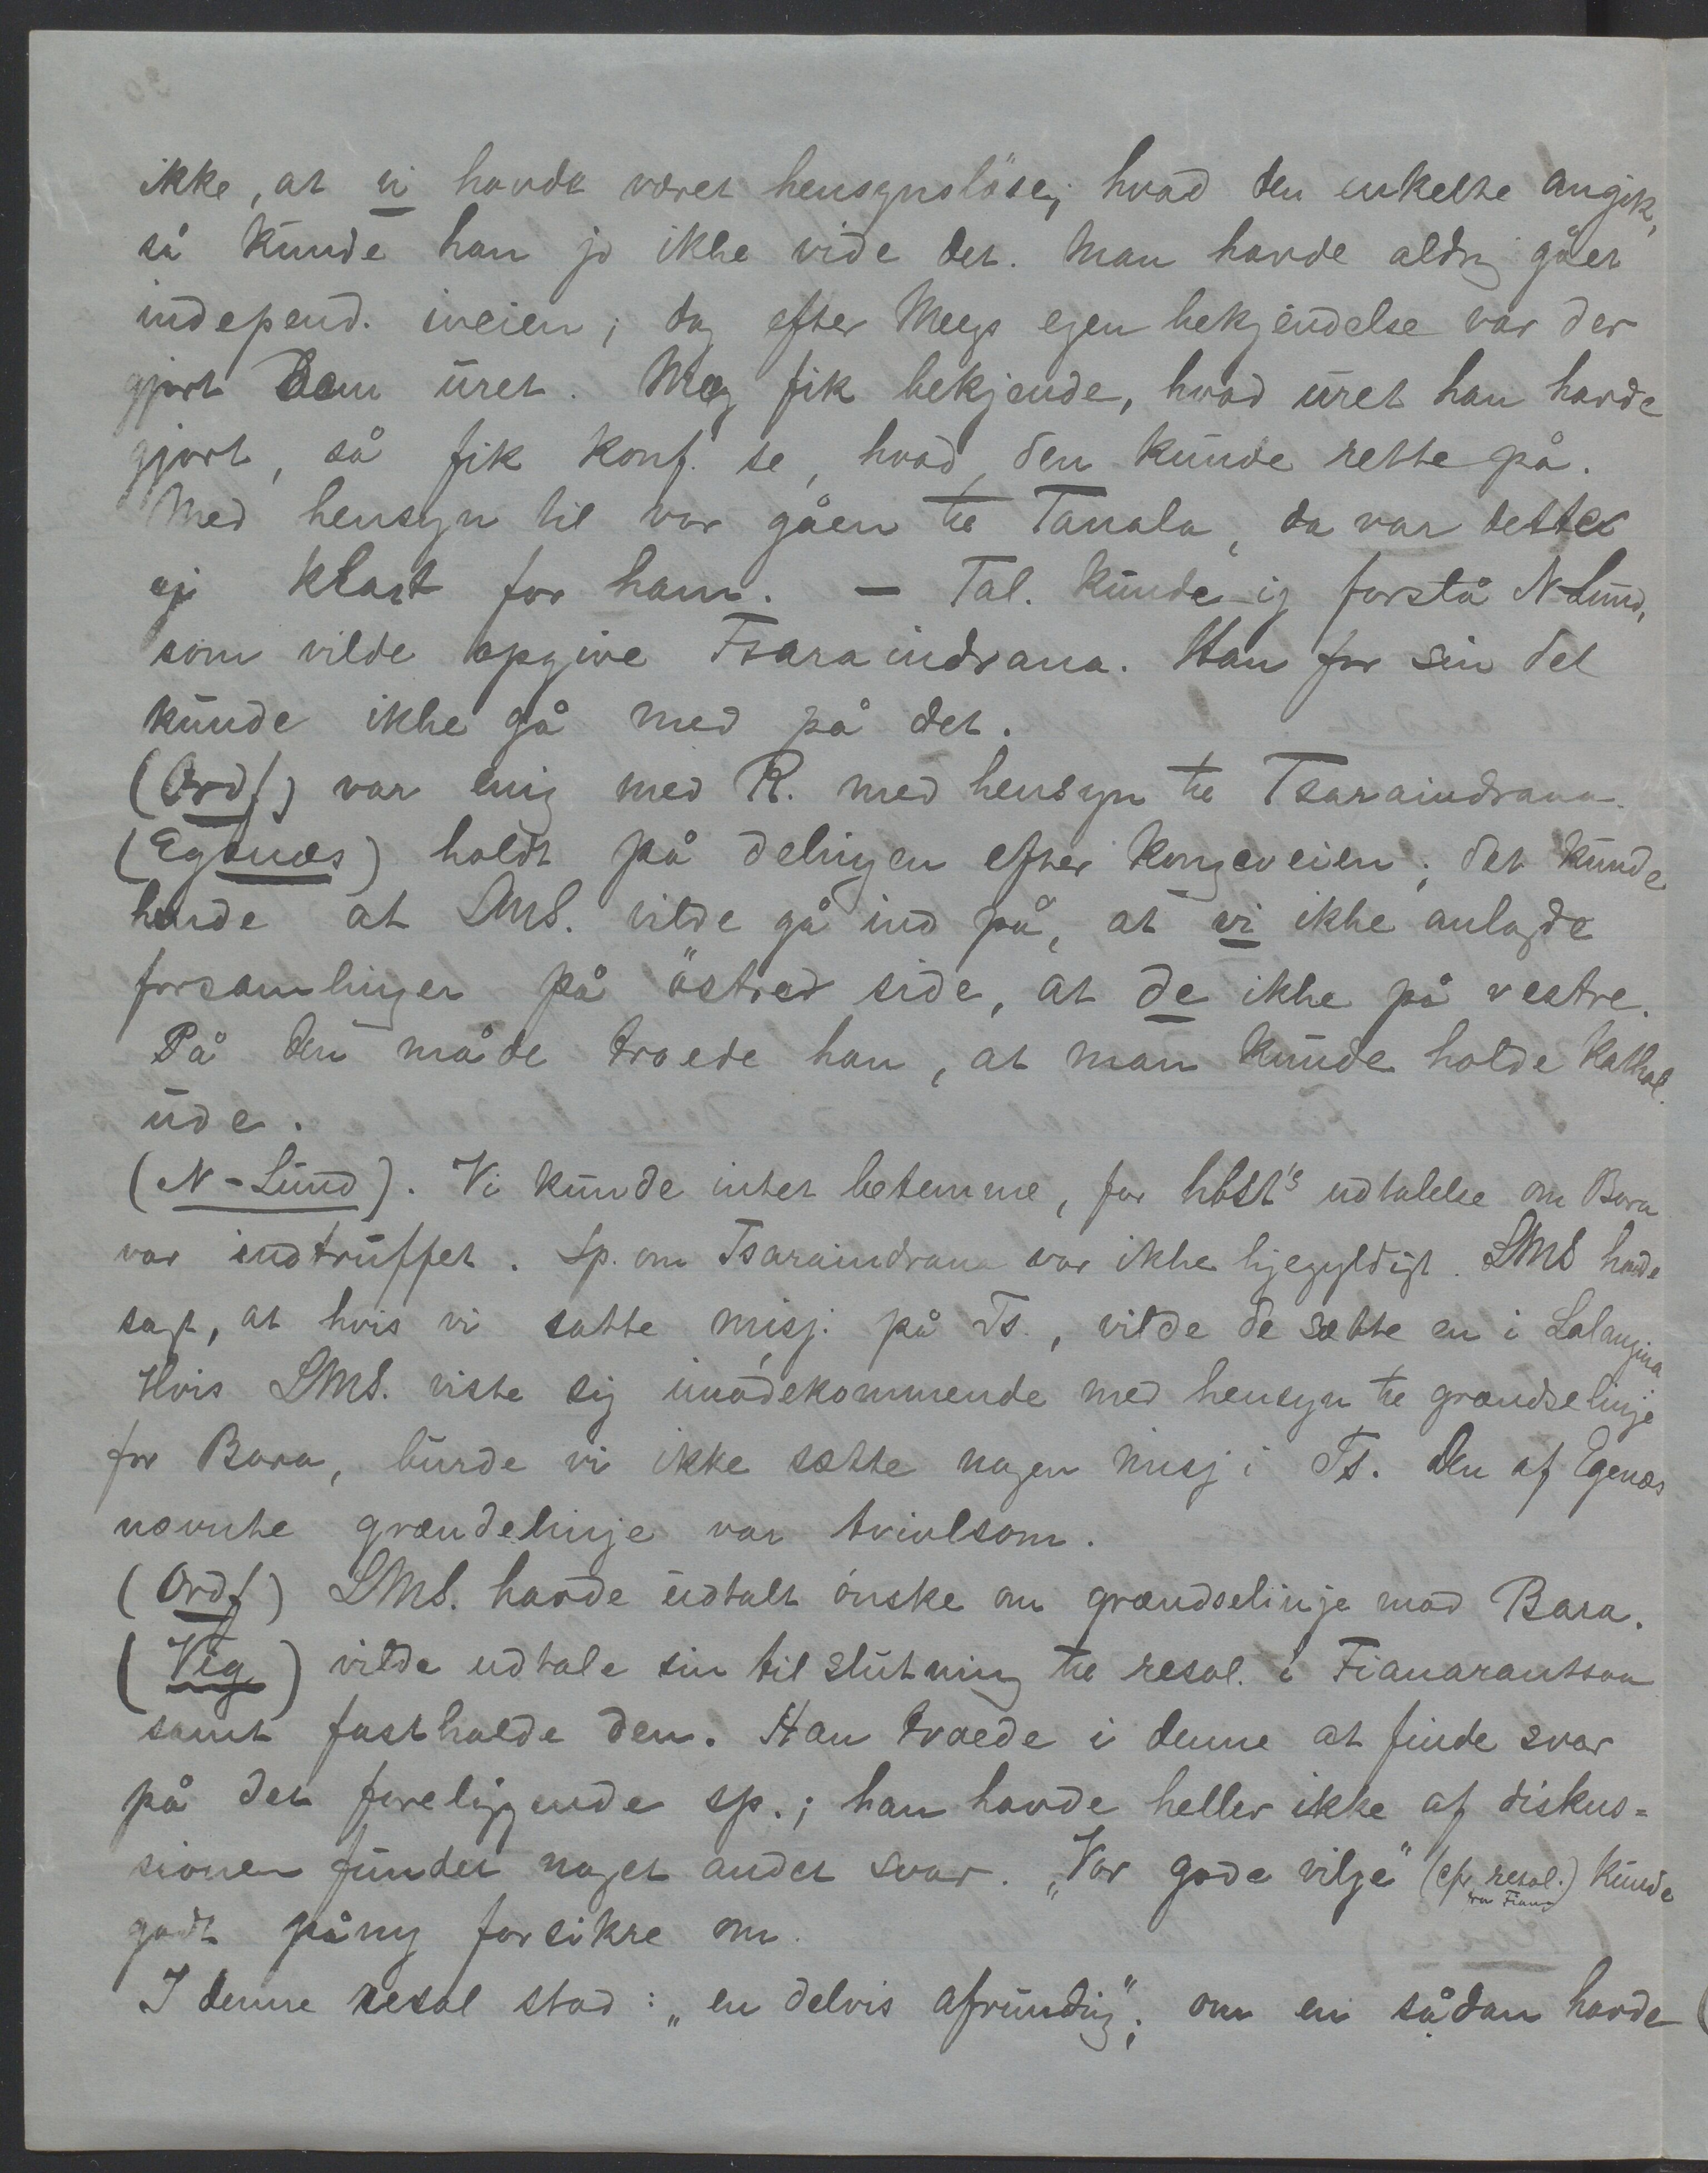 ikke, at vi havde været hensynslöse; hvad den enkelte angik,
så kunde han jo ikke vide det. Man havde aldrig gået
independ. iveien; dog efter Meegs egen bekjendelse var der
gjort Dem uret. Meeg fik bekjende, hvad uret han havde
gjort, så fik konf. se, hvad den kunde rette på.
Med hensyn til vor gåen til Tanala, da var dette
ej klart for ham. — Tal. kunde ej forstå N-Lund,
som vilde opgive Tsaraindrana. Han for sin del
kunde ikke gå med på det.
(Ordf) var enig med R. med hensyn til Tsaraindrana.
(Egenæs) holdt på delingen efter kongeveien; det kunde
hende at LMS. vilde gå ind på, at vi ikke anlagde
forsamlinger på östred side, at de ikke på vestre.
På den måde troede han, at man kunde holde kathol.
ude.
(N-Lund). Vi kunde intet betemme, for hbst's udtalelse om Bara
var indtruffet. Sp. om Tsaraindrana var ikke ligegyldigt. LMS havde
sagt, at hvis vi satte misj. på Ts., vilde de sætte en i Lalangina
Hvis LMS. viste sig imödekommende med hensyn til grændselinje
for Bara, burde vi ikke sætte nogen misj i Ts. Den af Egenæs
nævnte grændelinje var tvivlsom.
(Ordf) LMS. havde udtalt önske om grændselinje mod Bara.
(Vig) vilde udtale sin tilslutning til resol. i Fianarantsoa
samt fastholde den. Han troede i denne at finde svar
på det foreliggende sp.; han havde heller ikke af diskus=
sionen fundet noget andet svar. "Vor gode vilje" (cfr resol. fra Fiana) kunde
godt påny forsikre om.
I denne resol stod: "en delvis afrunding"; om en sådan havde